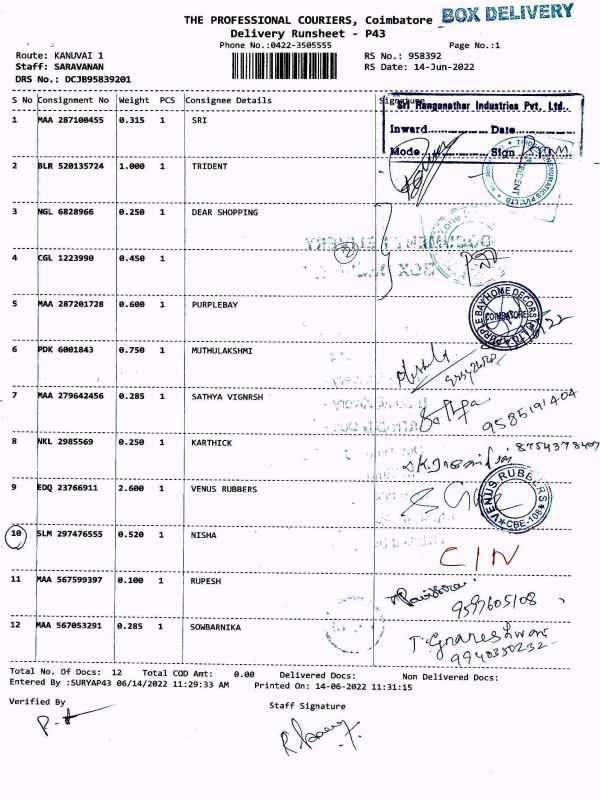 THE PROFESSIONAL COURIERS, Coimbatore
BOX DELIVERY
Delivery Runsheet - P43
Phone No.:0422-3505555
Page No.:1
Route: KANUVAI 1
RS No.: 958392
Staff: SARAVANAN
RS Date: 14-Jun-2022
DRS No.: DCJB95839201
S No Consignment No Weight PCS Consignee Details Signature
Sri Ranganathar Industries Pvt. Ltd.,
1 MAA 287100455 0.315 1 SRI
Inward............... Date...............
Mode............... Sign
2 BLR 520135724 1.000 1 TRIDENT
TRIDENT
3 NGL 6828966 0.250 1 DEAR SHOPPING
DOCUMENT DELIVERY
2
4 CGL 1223990 0.450 1
BOX
5 MAA 287201728 0.600 1 PURPLEBAY
PURPLEBAY HOME DECORS
COIMBATORE
6 PDK 6001843 0.750 1 MUTHULAKSHMI
7 MAA 279642456 0.285 1 SATHYA VIGNRSH
9585191404
8 NKL 2985569 0.250 1 KARTHICK
9 EDQ 23766911 2.600 1 VENUS RUBBERS
VENUS RUBBERS
CBE-108
10 SLM 297476555 0.520 1 NISHA
C/N
11 MAA 567599397 0.100 1 RUPESH
9597605108
12 MAA 567053291 0.285 1 SOWBARNIKA
T. Gnaneshwari
9940350232
Total No. Of Docs: 12 Total COD Amt: 0.00 Delivered Docs: Non Delivered Docs:
Entered By :SURYAP43 06/14/2022 11:29:33 AM Printed On: 14-06-2022 11:31:15
Verified By
Staff Signature